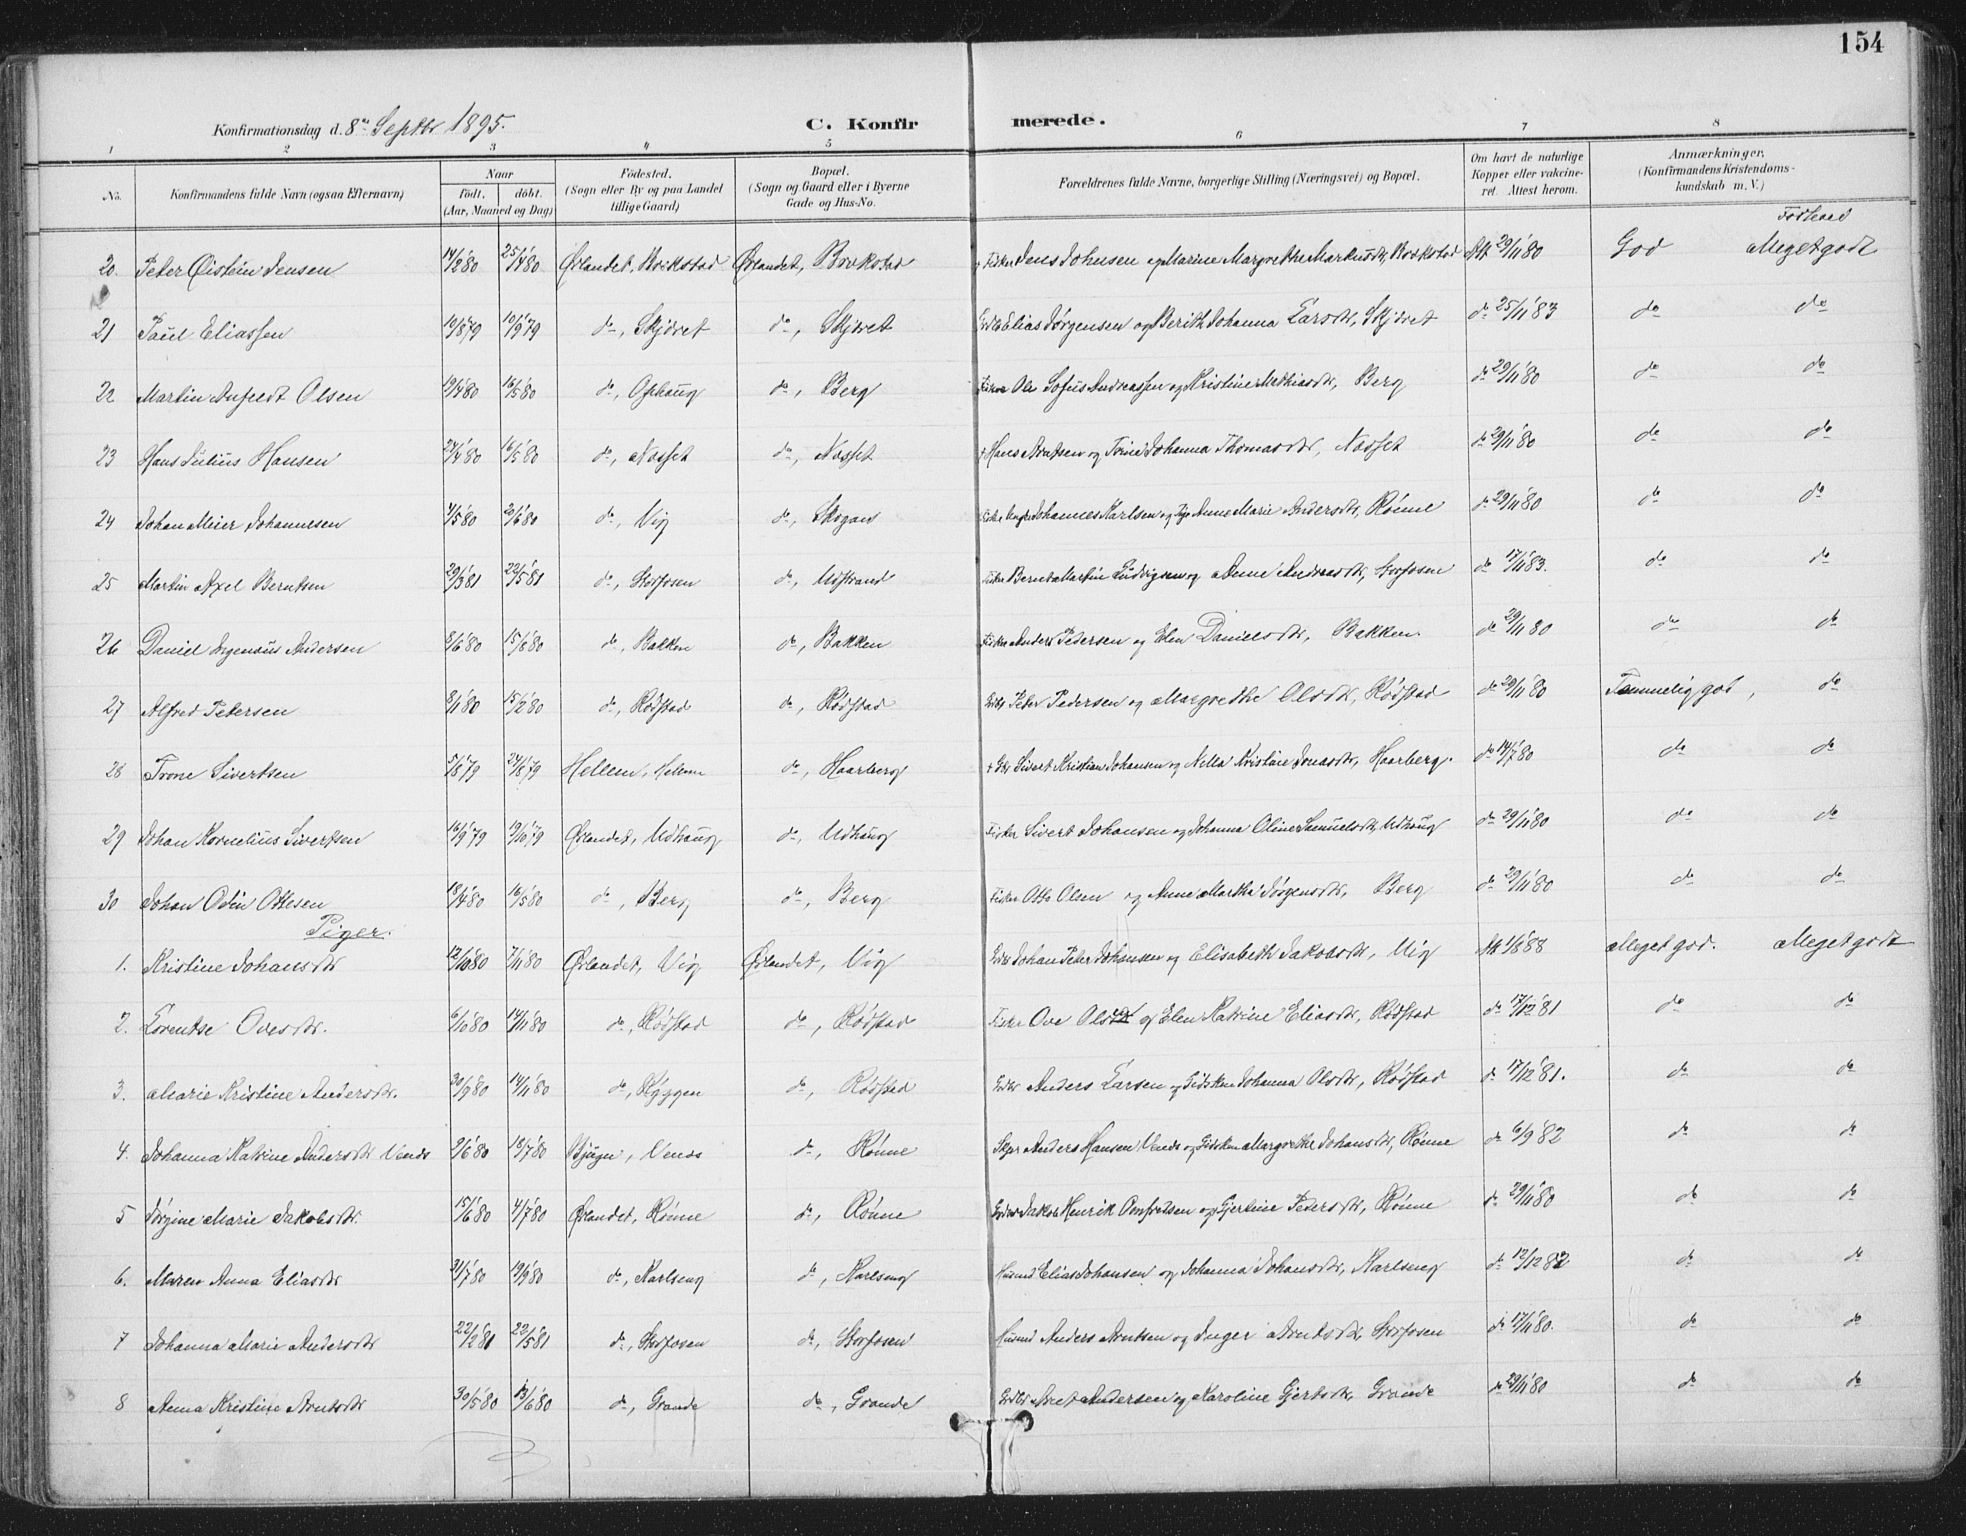 154
Konfirmationsdag d. 8de Septbr 1895. C. Konfirmerede.
1 2 3 4 5 6 7 8
No. Konfirmandens fulde Navn (ogsaa Efternavn) Naar Födt. döbt. (Aar, Maaned og Dag) Födested. (Sogn eller By og paa Landet tillige Gaard) Bopæl. (Sogn og Gaard eller i Byerne Gade og Hus-No. Forældrenes fulde Navne, borgerlige Stilling (Næringsvei) og Bopæl. Om havt de naturlige Kopper eller vakcineret. Attest herom. Anmærkninger. (Konfirmandens Kristendomskundskab m. V.)
Forhold
20. Peter Øistein Jensen 14/2 80 25/4 80 Ørlandet, Brekstad Ørlandet, Brekstad Fisker Jens Johnsen og Marine Margrethe Markusdtr, Brekstad Att 29/11 80 God Meget godt
21 Paul Eliassen 10/8 79 10/9 79 do, Skjöret do, Skjöret Elias Jørgensen og Berith Johanna Larsdtr, Skjöret do 25/11 83 do do
22 Martin Anfeldt Olsen 19/4 80 16/5 80 do, Ophaug do, Berg Fisker Ole Sofus Andreassen og Kristine Mathiasdtr, Berg do 29/11 80 do do
23 Hans Julius Hansen 24/4 80 16/5 80 do, Næsset do, Næsset Hans Arntsen og Trine Johanna Thomasdtr, Næsset do 29/11 80 do do
24 Johan Meier Johannesen 4/5 80 20/6 80 do, Vig do, Skogan Johannes Karlsen og Pige Anne Marie Andersdtr, Rønne do 29/11 80 do do
25 Martin Axel Berntsen 29/3 81 22/5 81 do, Storfosen do, Udstrand Fisker Bernt Martin Ludvigsen og Anne Andreasdtr, Storfosen do 17/11 83. do do
26 Daniel Ingenius Andersen 8/6 80 15/8 80 do, Bakken do, Bakken Fisker Anders Pedersen og Elen Danielsdtr, Bakken. do 29/11 80 do do
27 Alfred Petersen 8/1 80 15/2 80 do, Rödstad do, Rödstad Peter Pedersen og Margrethe Olsdtr, Rödstad do 29/11 80 Temmelig god, do
28 Trone Sivertsen 5/8 79 24/8 79 Hellem, Hellem do, Haarberg Sivert Kristian Johansen og Nella Kristine Jonasdtr, Haarberg. do 14/7 80 do do
29 Johan Kornelius Sivertsen 16/9 79 19/10 79 Ørlandet, Udhaug do, Udhaug Fisker Sivert Johansen og Johanna Oline Samuelsdtr, Udhaug do 29/11 80 do do
30 Johan Odin Ottesen 18/4 80 16/5 80 do, Berg do, Berg Fisker Otto Olsen og Anne Martha Jørgensdtr, Berg do 29/11 80 do do
Piger.
1. Kristine Johansdtr 12/10 80 7/11 80 Ørlandet, Vig Ørlandet, Vig Johan Peter Johansen og Elisabeth Jakobsdtr, Vig Att 1/8 88 Meget god. Meget godt
2. Lorentse Ovesdtr. 6/10 80 14/11 80 do, Rödstad do, Rödstad Fisker Ove Olsen og Elen Katrine Eliasdtr, Rödstad do 17/12 81 do do
3. Marie Kristine Andersdtr. 30/9 80 14/11 80 do, Ryggen do, Rödstad Anders Larsen og Gidsken Johanna Olsdtr, Rödstad do 17/12 81. do do
4. Johanna Katrine Andersdtr Vends 2/6 80 18/7 80 Bjugn, Vends do, Rønne Anders Hansen Vends og Gidsken Margrethe Johansdtr, Rønne do 6/9 82 do do
5 Jørgine Marie Jakobsdtr. 15/6 80 4/7 80 Ørlandet, Rönne do, Rönne Jakob Henrik Arnfeldsen og Gjertine Pedersdtr, Rönne do 29/11 80 do do
6. Maren Anna Eliasdtr 31/7 80 19/9 80 do, Karlseng do, Karlseng Husmd Elias Johansen og Johanna Johansdtr, Karlseng do 12/12 82 do do
7 Johanna Marie Andersdtr 22/2 81 22/5 81 do, Storfosen do, Storfosen Husmd Anders Arntsen og Inger Arntsdtr, Storfosen do 17/11 80. do do
8 Anna Kristine Arntsdtr 30/5 80 13/6 80 do, Grande do, Grande Arnt Andersen og Karoline Gjertsdtr, Grande do 29/11 80 do do